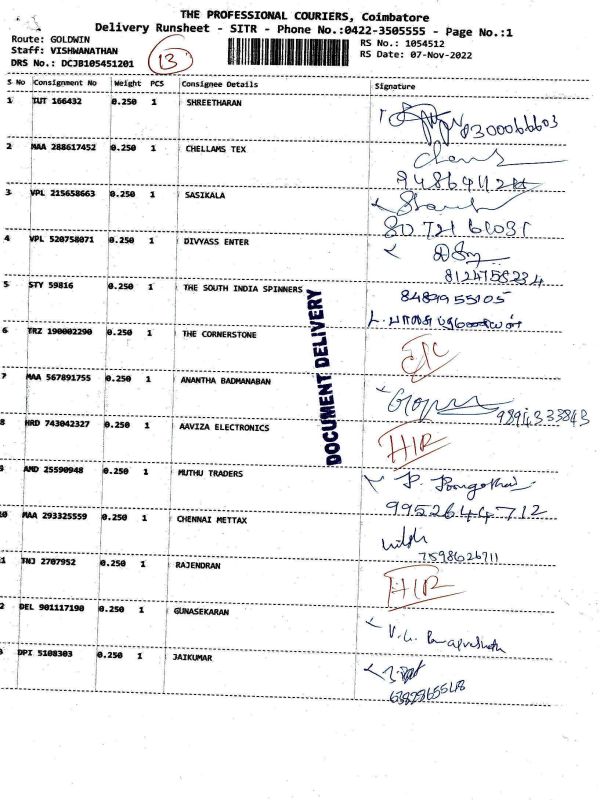 THE PROFESSIONAL COURIERS, Coimbatore
Delivery Runsheet - SITR - Phone No.:0422-3505555 - Page No.:1
Route: GOLDWIN
Staff: VISHWANATHAN
DRS No.: DCJB105451201
13
RS No.: 1054512
RS Date: 07-Nov-2022
S No Consignment No Weight PCS Consignee Details Signature
1 TUT 166432 0.250 1 SHREETHARAN
8300066603
2 MAA 288617452 0.250 1 CHELLAMS TEX
3 VPL 215658663 0.250 1 SASIKALA
4 VPL 520758071 0.250 1 DIVYASS ENTER
8124758234
5 STY 59816 0.250 1 THE SOUTH INDIA SPINNERS
8489955105
6 TRZ 190002290 0.250 1 THE CORNERSTONE
7 MAA 567891755 0.250 1 ANANTHA BADMANABAN
9894333843
8 HRD 743042327 0.250 1 AAVIZA ELECTRONICS
HIR
9 AMD 25590948 0.250 1 MUTHU TRADERS
9952644712
10 MAA 293325559 0.250 1 CHENNAI METTAX
7598626711
1 TNJ 2707952 0.250 1 RAJENDRAN
HIR
2 DEL 901117190 0.250 1 GUNASEKARAN
3 DPI 5108303 0.250 1 JAIKUMAR
DOCUMENT DELIVERY